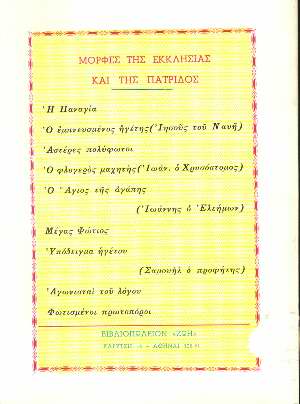 ΜΟΡΦΕΣ ΤΗΣ ΕΚΚΛΗΣΙΑΣ
ΚΑΙ ΤΗΣ ΠΑΤΡΙΔΟΣ
Ἡ Παναγία
Ὁ ἐμπνευσμένος ἡγέτης (Ἰησοῦς τοῦ Ναυῆ)
Ἀστέρες πολύφωτοι
Ὁ φλογερὸς μαχητὴς (Ἰωάν. ὁ Χρυσόστομος)
Ὁ Ἅγιος τῆς ἀγάπης
(Ἰωάννης ὁ Ἐλεήμων)
Μέγας Φώτιος
Ὑπόδειγμα ἡγέτου
(Σαμουὴλ ὁ προφήτης)
Ἀγωνισταὶ τοῦ λόγου
Φωτισμένοι πρωτοπόροι
ΒΙΒΛΙΟΠΩΛΕΙΟΝ «ΖΩΗ»
ΑΘΗΝΑΙ